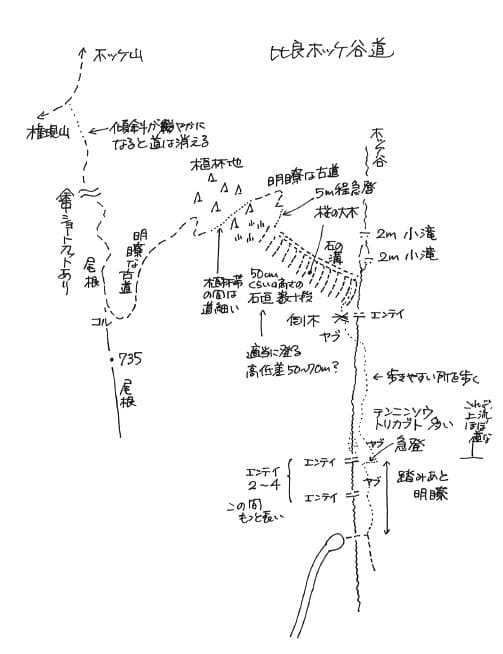 比良ホッケ谷道
ホッケ山
権現山
傾斜が緩やかに
なると道は消える
植林地
明瞭な古道
5m程急登
桜の大木
石の溝
ホッケ谷
2m 小滝
2m 小滝
途中ショートカットあり
尾根
明瞭な古道
コル
735
尾根
植林帯
の間は
道細い
50cm
くらいの高さの
石垣 数十段
適当に登る
高低差50~70m?
倒木
エンテイ
ヤブ
歩きやすい所を歩く
テンニンソウ
トリカブト 多い
これより
上流
ほぼ
道な
ヤブ
急登
エンテイ
エンテイ
2~4
この間
もっと長い
エンテイ
ヤブ
踏みあと
明瞭